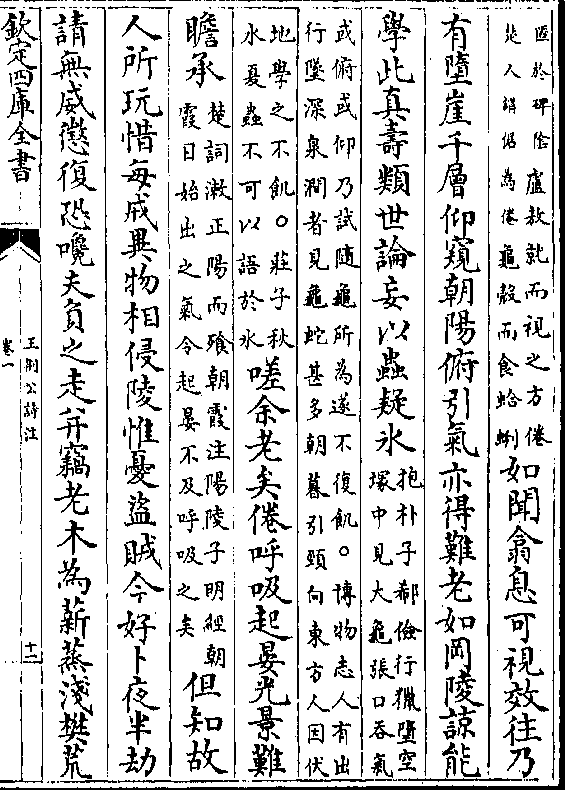 匿於碑陰盧敖就而視之方倦
楚人謂倨為倦龜殻而食蛤蜊
如聞翕息可視效往乃
有墮崖千層仰窺朝陽俯引氣亦得難老如岡陵諒能
學此真壽類世論妄以蟲疑氷
抱朴子郗儉行獵墮空
塚中見大龜張口吞氣
或俯或仰乃試隨龜所為遂不復飢○博物志人有出
行墜深泉澗者見龜蛇甚多朝暮引頸向東方人因伏
地學之不飢○莊子秋
水夏蟲不可以語於氷
嗟余老矣倦呼吸起晏光景難
瞻承
楚詞漱正陽而飱朝霞注陽陵子明經朝
霞日始出之氣今起晏不及呼吸之矣
但知故
人所玩惜每戒異物相侵陵惟憂盜賊今好卜夜半劫
請無威懲復恐嚵夫負之走并竊老木為薪蒸淺樊荒
欽定四庫全書
王荊公詩注
卷一
十二